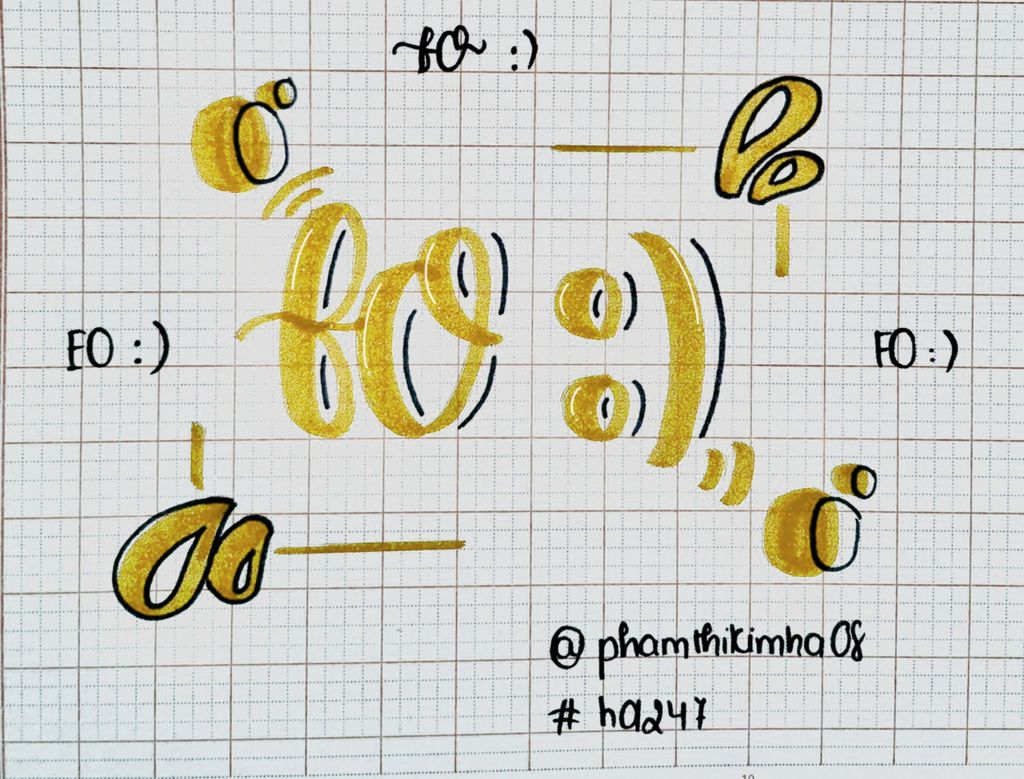 fO :)
fO :)
FO :)
FO :)
@ phamthikimha08
# ha247